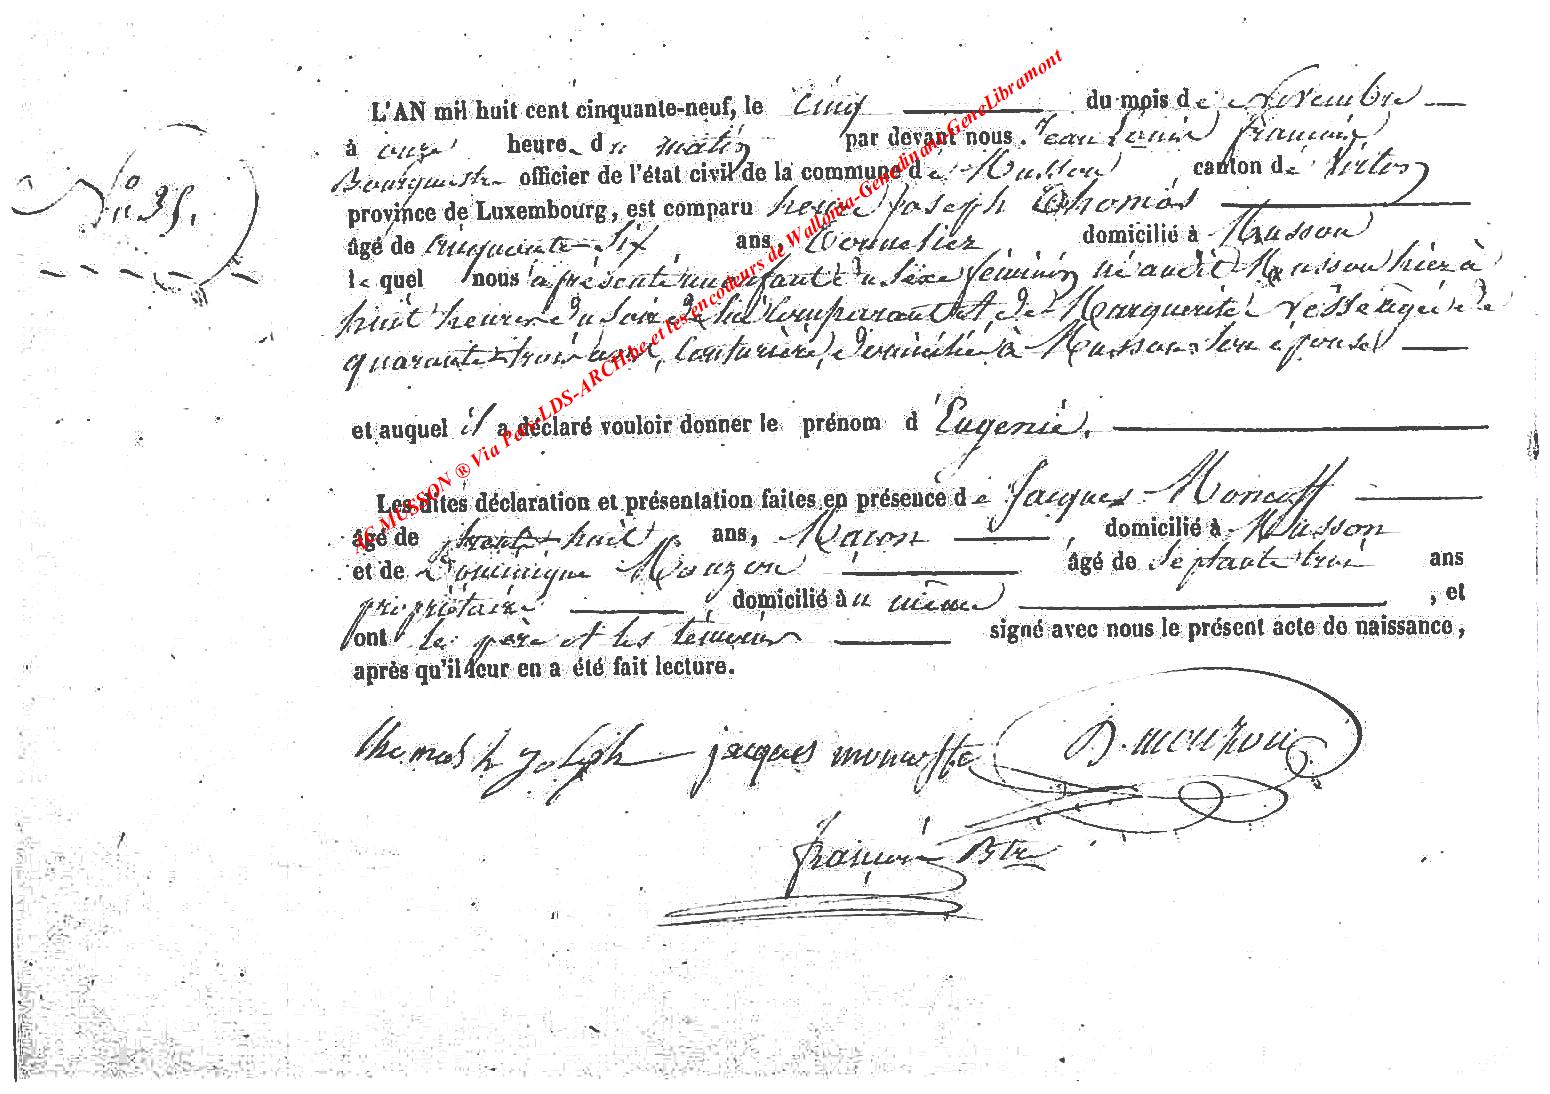 L'AN mil huit cent cinquante-neuf, le cinq du mois de Novembre
à onze heures du matin par devant nous Jean Louis françois
Bourgmestre officier de l'état civil de la commune de Musson canton de Virton
N° 35.
province de Luxembourg, est comparu henri Joseph Thomas
âgé de Cinquante-Six ans, Tonnelier domicilié à Musson
lequel nous a présenté un enfant du Sexe féminin né audit Musson hier à
huit heures du Soir de lui Comparant et de Marguerite âgée de
quarante-trois ans, Couturière, domiciliée à Musson Son épouse
et auquel il a déclaré vouloir donner le prénom d'Eugenie.
Les dites déclaration et présentation faites en présence de Jacques
âgé de trente-huit ans, Maçon domicilié à Musson
et de Dominique Mouzon âgé de Septante trois ans
propriétaire domicilié au même , et
ont le père et les témoins signé avec nous le présent acte de naissance,
après qu'il leur en a été fait lecture.
thomas h joseph jacques D. mouzon
françois Btre
AC MUSSON ® Via Petr-LDS-ARCH.be et les encodeurs de Wallonia-Genedinant-GeneLibramont